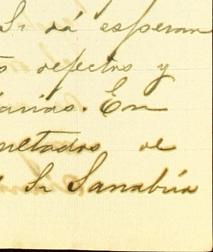 Sr dá esperan
s defectos y
arias. En
ultados de
Sr Sanabria